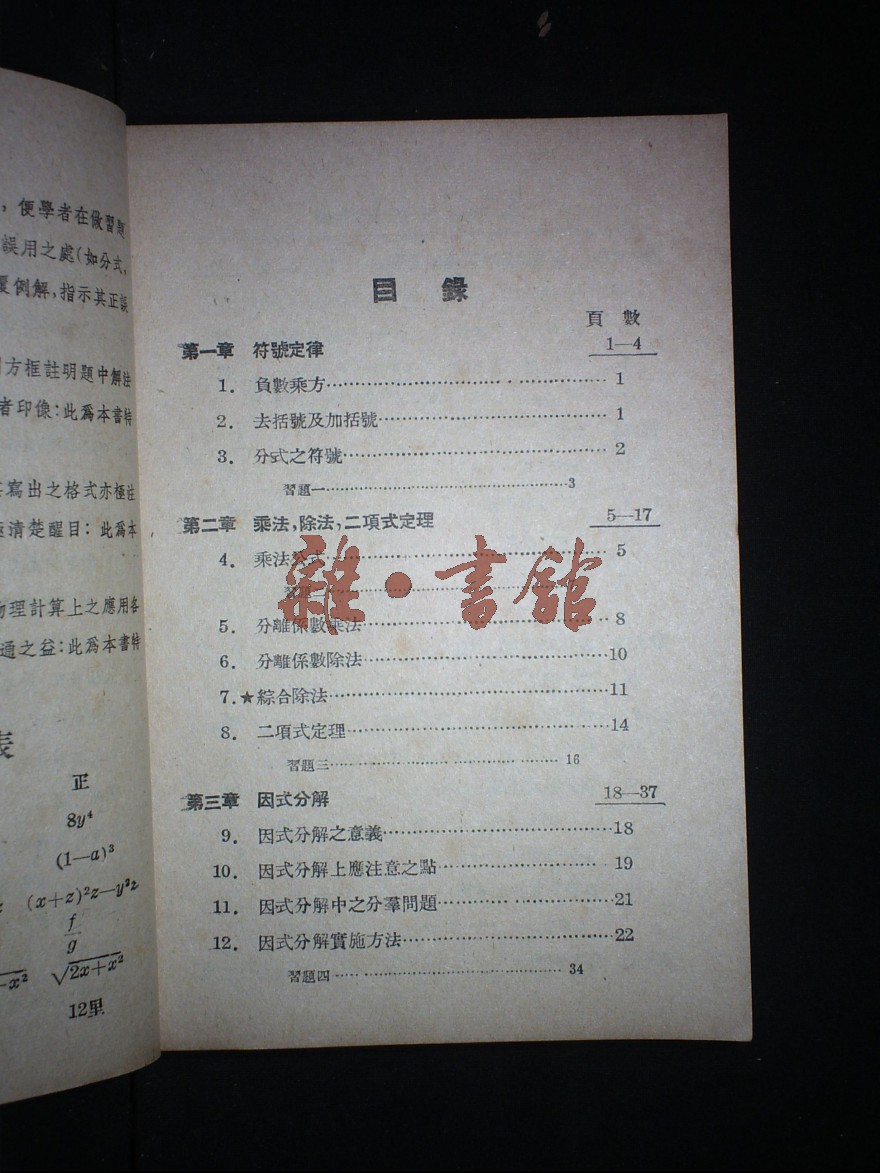 ，便學者在做習題
誤用之處(如分式，
例解，指示其正誤
方框註明題中解注
者印像：此爲本書特
寫出之格式亦極注
清楚醒目：此爲本
物理計算上之應用各
通之益：此爲本書特
表
正
8y⁴
(1—a)³
(x+z)²z—y²z
f/g
—x² √2x+x²
12里
目 錄
頁 數
第一章 符號定律 1—4
1. 負數乘方 1
2. 去括號及加括號 1
3. 分式之符號 2
習題一 3
第二章 乘法，除法，二項式定理 5—17
4. 乘法公式 5
習題
5. 分離係數乘法 8
6. 分離係數除法 10
7.★綜合除法 11
8. 二項式定理 14
習題三 16
第三章 因式分解 18—37
9. 因式分解之意義 18
10. 因式分解上應注意之點 19
11. 因式分解中之分羣問題 21
12. 因式分解實施方法 22
習題四 34
雜·書館